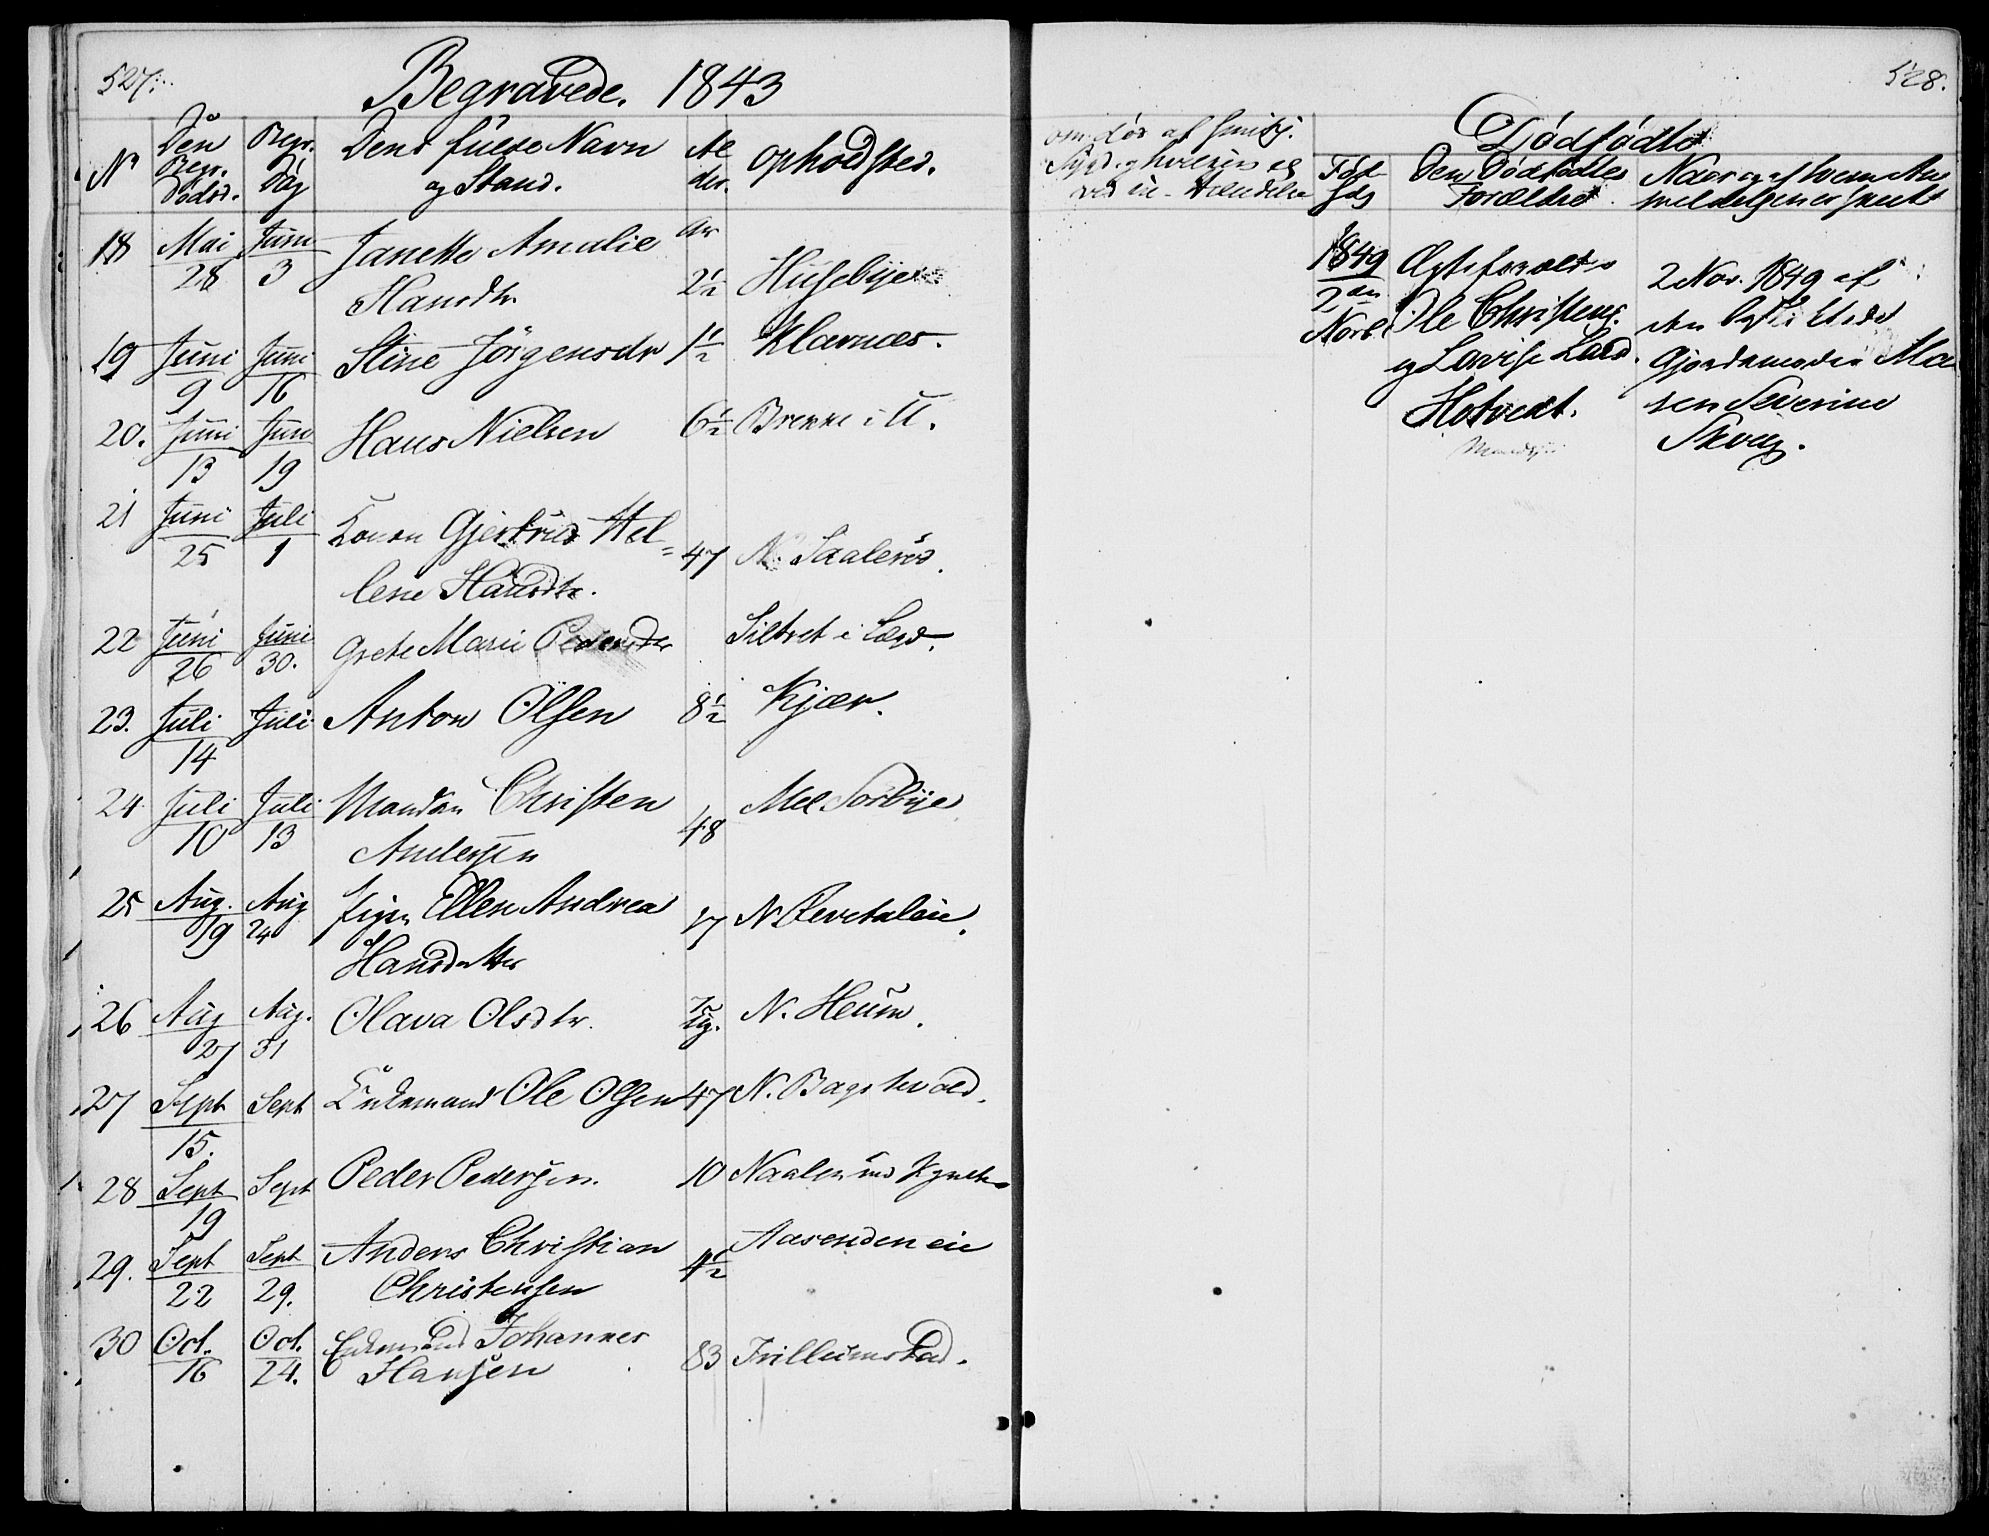 527.
Begravede. 1843
No Den Begr. Dødsd. Begr. Dag Dens fulde Navn og Stand. Alder. Opholdsted.
18 Mai 28 Juni 3 Janette Amalie Hansdtr Aar 2½ Husebye
19 Juni 9 Juni 16 Stine Jörgensdr 1½ Klavnæs.
20. Juni 13 Juni 19 Hans Nielsen 6½ Brekke i U.
21 Juni 25 Juli 1 Konen Gjertrud Hel=
lene Hansdtr. 47 N. Saalerød.
22 Juni 26 Juni 30. Grete Marie Pedersdtr
23. Juli 14 Juli Anton Olsen 8½ Kjær.
24 Juli 10 Juli 13 Manden Christen
Andersen 48 Mel Sörbye
25 Aug. 19 Aug 24 Pigen Ellen Andrea
Hansdatter 17 N. Revetaleie.
26 Aug 27 Aug. 31 Olava Olsdtr. N. Heum.
27 Sept 15. Sept Enkemand Ole Olsen 47 N. Bagshvold.
28 Sept 19 Sept Peder Pedersen. 10
29. Sept 22 Sept 29. Anders Christian
Christensen 4½ Aasenden eie
30 Oct. 16 Oct. 24. Enkemand Johannes
Hansen 83
528.
Dødfødte
Den Dødfødtes Forældre
Naar og af hvem An
meldelsen er skeet
1849
2den
Novbr
Ægtefolk
Ole Christens.
og Lovise Lard.
Hotvedt.
2 Nov. 1849 af
Gjordemoder Ma
ren Severine
Skoug.